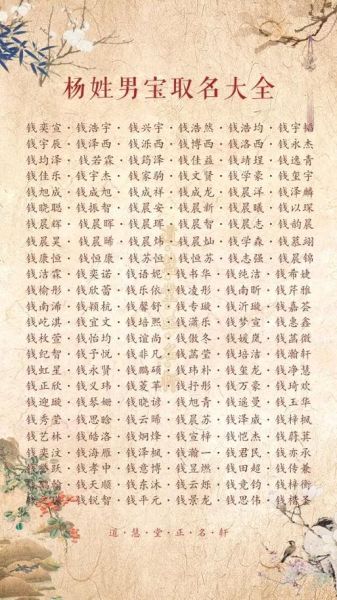 杨姓男宝取名大全
钱奕宣·钱浩宇·钱兴宇·钱浩然·钱浩均·钱宇韬
钱宇辰·钱泽西·钱泺西·钱博西·钱洛西·钱永杰
钱均泽·钱若霖·钱筠泽·钱佳益·钱靖埕·钱逸青
钱佳乐·钱宇杰·钱家驹·钱文贤·钱学豪·钱玺宇
钱旭成·钱成旭·钱成祥·钱成龙·钱晨洋·钱泽麟
钱晓聪·钱振智·钱晨安·钱晨新·钱晨曦·钱以琛
钱晨·钱晨晖·钱晨珲·钱晨智·钱晨志·钱韵晨
钱晨昊·钱晨晞·钱晨炜·钱晨灿·钱学森·钱晨翊
钱康恒·钱恒康·钱苏恒·钱恒苏·钱志强·钱晨锦
钱洁霖·钱奕诺·钱语妮·钱书华·钱纯洁·钱希婕
钱榆彤·钱欣蕾·钱乐依·钱凌彤·钱南昕·钱芹雅
钱南浠·钱颖杭·钱馨舒·钱专璇·钱沂璇·钱嘉芬
钱屹淇·钱宜文·钱培熙·钱潇乐·钱梦宣·钱惠鑫
钱玫萱·钱怡均·钱谊尚·钱傲冬·钱媛岚·钱菡微
钱纪智·钱予悦·钱非凡·钱菡莹·钱培洁·钱瀚轩
钱虹星·钱永贤·钱鹏硕·钱玮朴·钱玺龙·钱净慧
钱正欣·钱义玮·钱菱莘·钱抒彤·钱万豪·钱琦欢
钱迎璇·钱琴姗·钱晓谚·钱旭青·钱遥曼·钱玉华
钱秀莹·钱思晗·钱云晞·钱晨苏·钱泽威·钱梓枫
钱艺林·钱皓洛·钱炯烽·钱宣梓·钱恺杰·钱蔚萁
钱奕汶·钱海雁·钱泽枫·钱瀚一·钱君民·钱亦承
跃·钱孝中·钱意博·钱昱燃·钱田超·钱传兼
·钱天顺·钱东沐·钱云烁·钱竟钧·钱梓衡
·钱锐智·钱平元·钱景龙·钱思伟·钱楷圣
道·慧·堂·正·名·轩